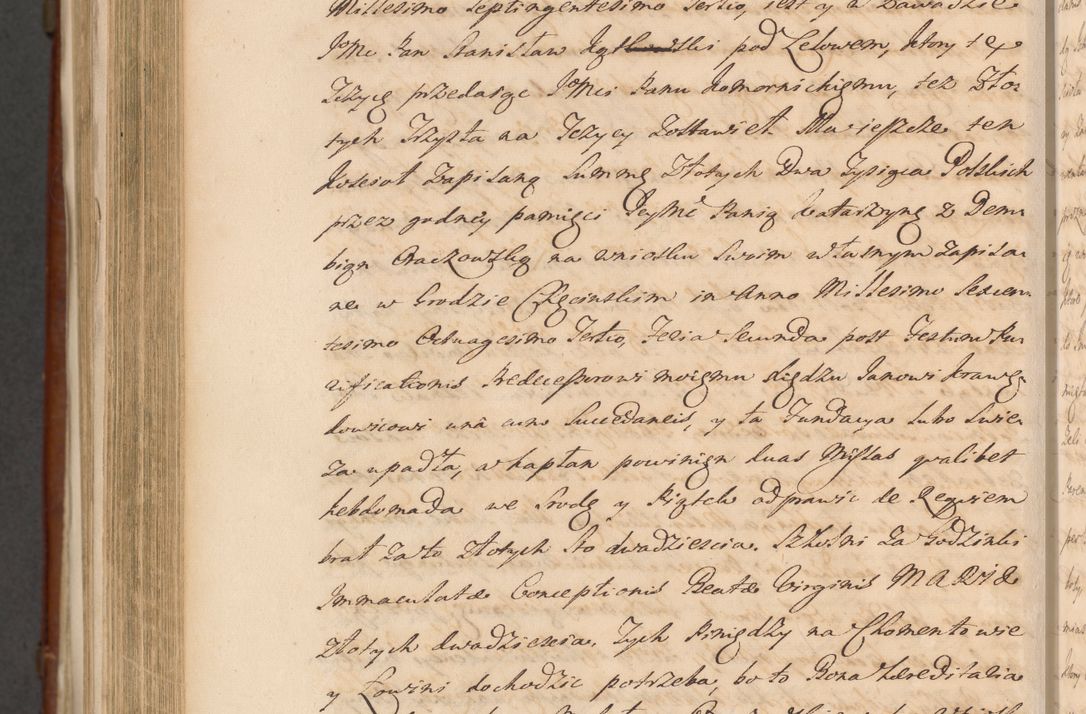 Millesimo Septingentesimo Tertio, iest y w Zawadzie
JoMc Pan Stanisław pod Lelowem, ktory tęż
Jezyg przedaiąc JoMci Panu Komornickięmu, też Zło-
tych Trzysta na Jezycy zostawieł. Ma ieszcze ten
Kosciół Zapisaną Summę Złotych Dwa Tysiąca Polskich
przez godney pamięci JeyMć Panią Katarzynę z Dem-
bian na wniosku Swoim własnym zapisa-
ne w Grodzie Chęcinskim in Anno Millesimo Sexcen-
tesimo Octuagesimo Tertio, Feria Secunda post Festum Pu-
rificationis Predecessorowi moięmu Xiędzu Janowi
unà cum Succedaneis, y ta Fundacya Lubo Swie-
za upadła, a kapłan powinięn duas Missas qualibet
hebdomada we Srodę y Piątek odprawic de Requiem
brał za to złotych Sto dwadziescia. Szkolni za Godzinki
Immaculatæ Conceptionis Beatæ Virginis MARIÆ
złotych dwadziescia. Tych Piniędzy na Chomentowie
y Łowini dochodzic potrzeba, bo to Bona Hæreditaria